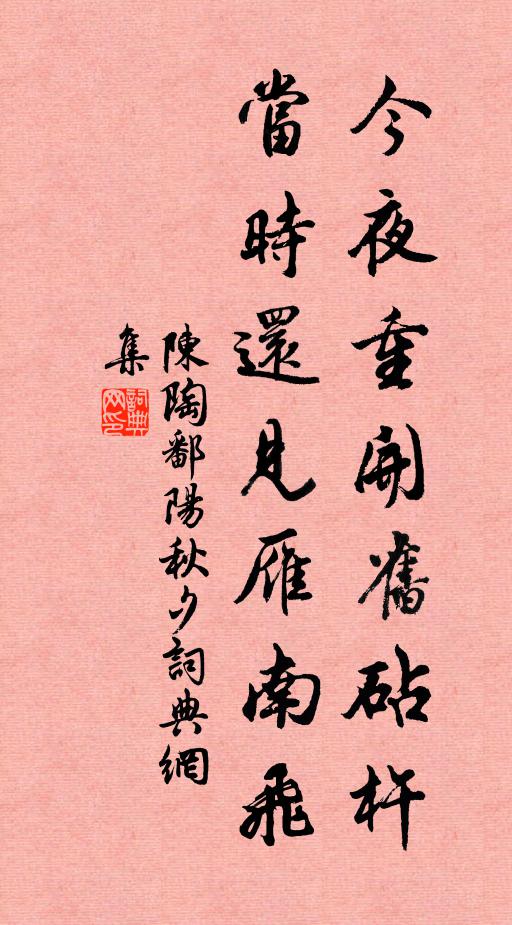 今夜重開舊砧杵
當時還見雁南飛
陳陶鄱陽秋夕詞典網
集
詞典
网印